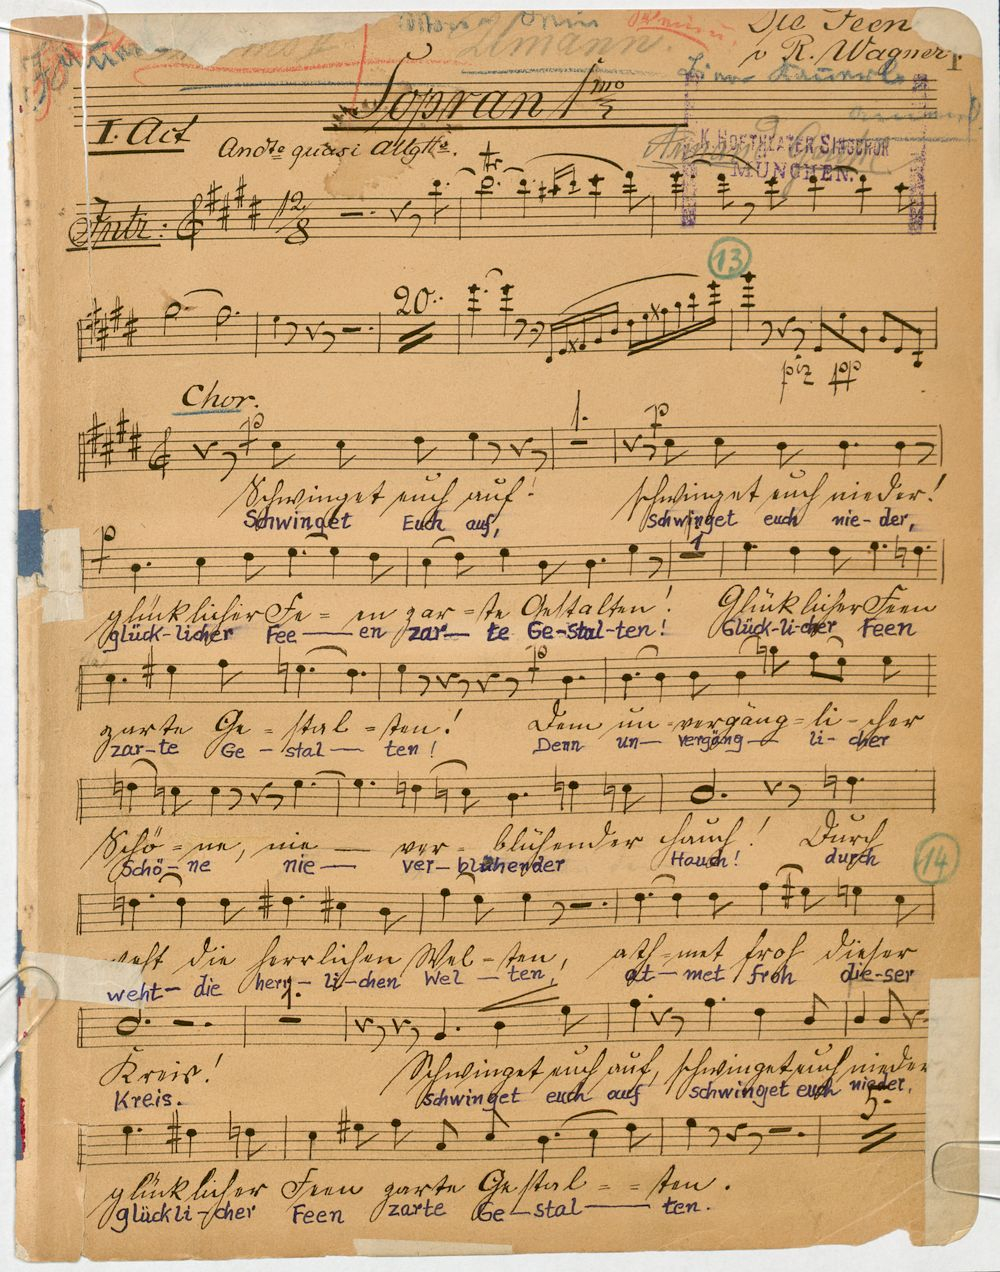 Die Feen
v R. Wagner
Sopran 1mo
I. Act
Andte quasi Allgtto.
K. HOFTHEATER SINGCHOR
MÜNCHEN.
Intr:
12/8
13
20.
piz pp
Chor.
p 1. p
Schwinget euch auf! schwinget euch nieder!
Schwinget Euch auf, schwinget euch nie-der,
p 1
glücklicher Fe-en zar-te Gestalten! Glücklicher Feen
glück-licher Fee—en zar—te Ge-stal-ten! Glück-li-cher Feen
p
zarte Ge-stal-ten! Dem un-vergäng-li-cher
zar-te Ge-stal—ten! Denn un—vergäng—li-cher
Schö-ne, nie—ver-blühender Hauch! Durch
Schö-ne nie—ver-blühender Hauch! durch
14
weht die herrlichen Wel-ten, ath-met froh dieser
weht-die herr-li-chen Wel-ten, at-met froh die-ser
1.
Kreis! Schwinget euch auf, schwinget euch nieder
Kreis. schwinget euch auf schwinget euch nieder,
5.
glücklicher Feen zarte Gestal--ten.
glückli-cher Feen zarte Ge-stal—ten.